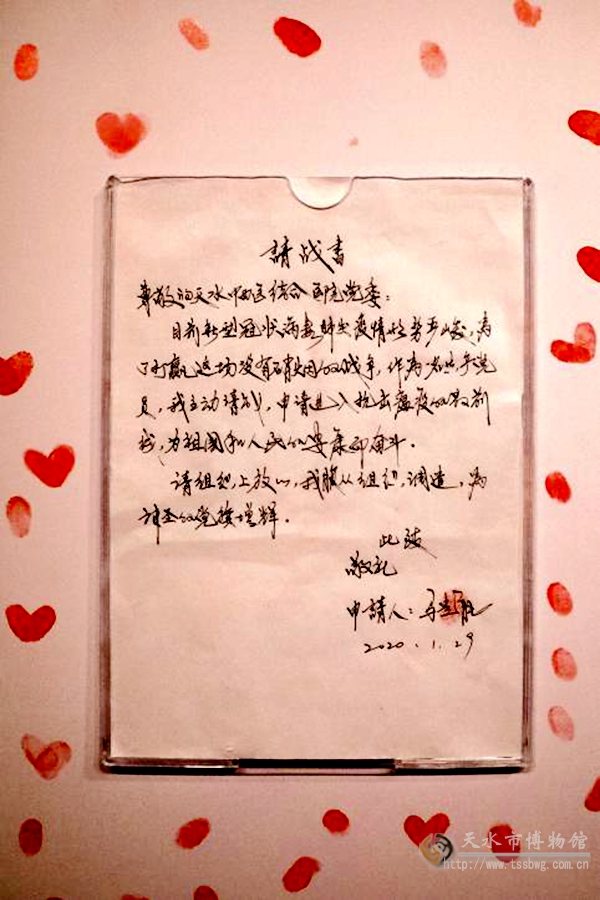 請战书
尊敬的天水中西医结合医院党委：
目前新型冠状病毒肺炎疫情形势严峻，为
了打赢这场没有硝烟的战争，作为一名共产党
员，我主动请战，申请进入抗击瘟疫的最前
线，为祖国和人民的安康而奋斗。
请组织上放心，我服从组织，调遣，为
神圣的党旗增辉。
此致
敬礼
申請人：
2020.1.29
天水市博物馆
http://www.tssbwg.com.cn